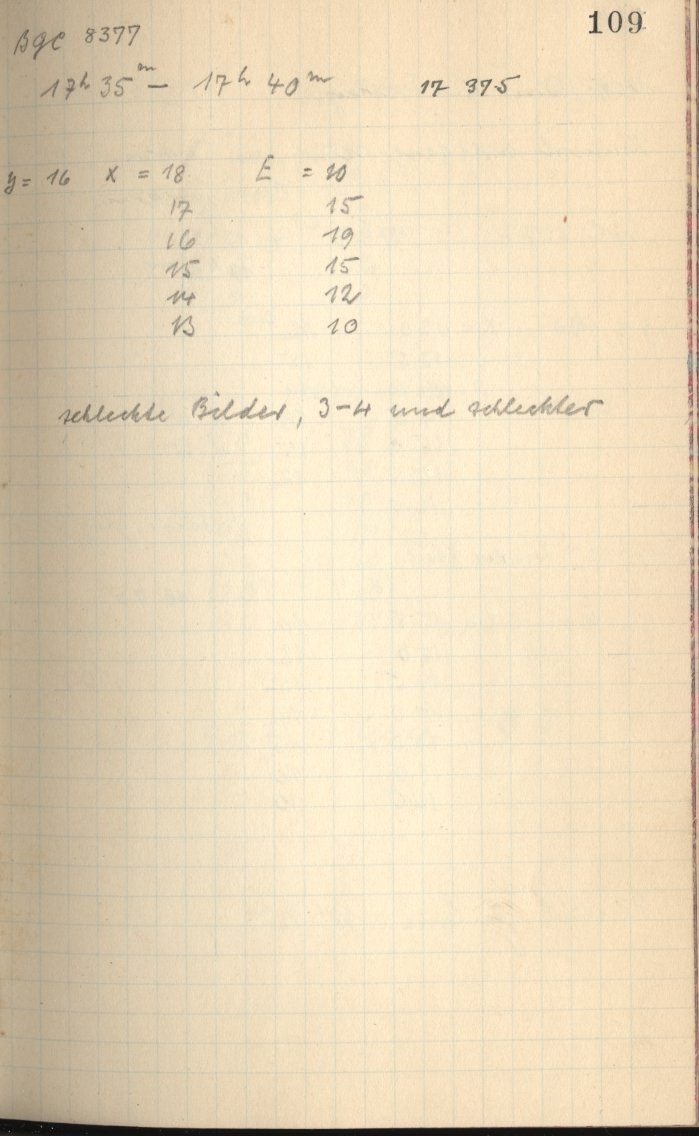 109
BGC 8377
17h 35m – 17h 40m 17 37.5
y = 16 x = 18 E = 10
17 15
16 19
15 15
14 12
13 10
schlechte Bilder, 3–4 und schlechter